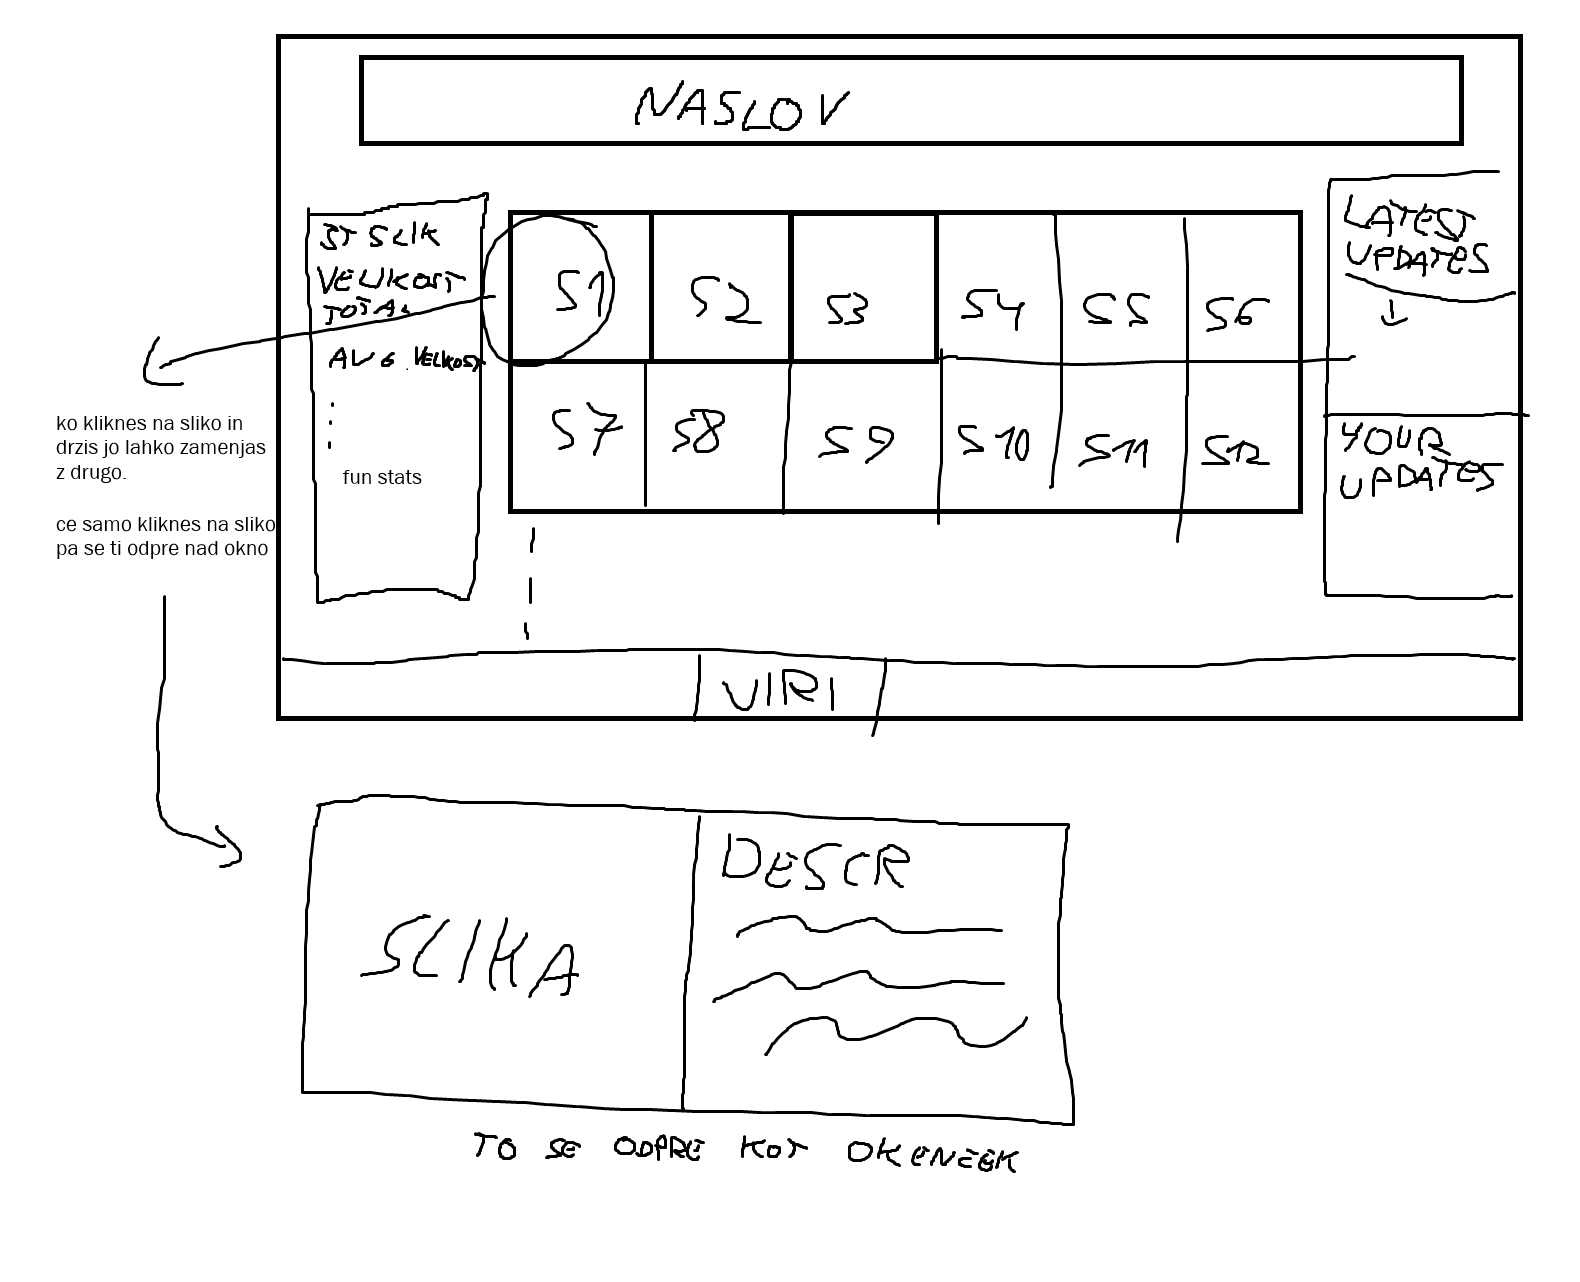 NASLOV
ST SLIK
VELIKOST
TOTAL
AVG. VELIKOST
fun stats
S1 S2 S3 S4 S5 S6
S7 S8 S9 S10 S11 S12
LATEST
UPDATES
YOUR
UPDATES
ko kliknes na sliko in
drzis jo lahko zamenjas
z drugo.
ce samo kliknes na sliko
pa se ti odpre nad okno
VIRI
SLIKA
DESCR
TO SE ODPRE KOT OKENCEK